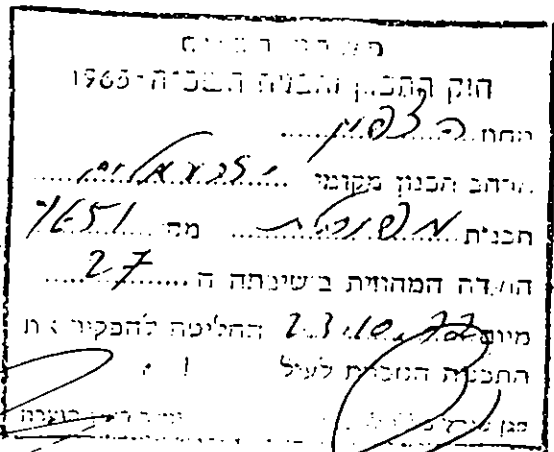 משרד הפנים
חוק התכנון והבניה תשכ"ה-1965
מחוז הצפון
מרחב תכנון מקומי יזרעאלים
תכנית מפורטת מס' 1651
הועדה המחוזית בישיבתה ה 27
מיום 23.10.72 החליטה להפקיד את
התכנית הנזכרת לעיל
סגן יושב ראש הועדה